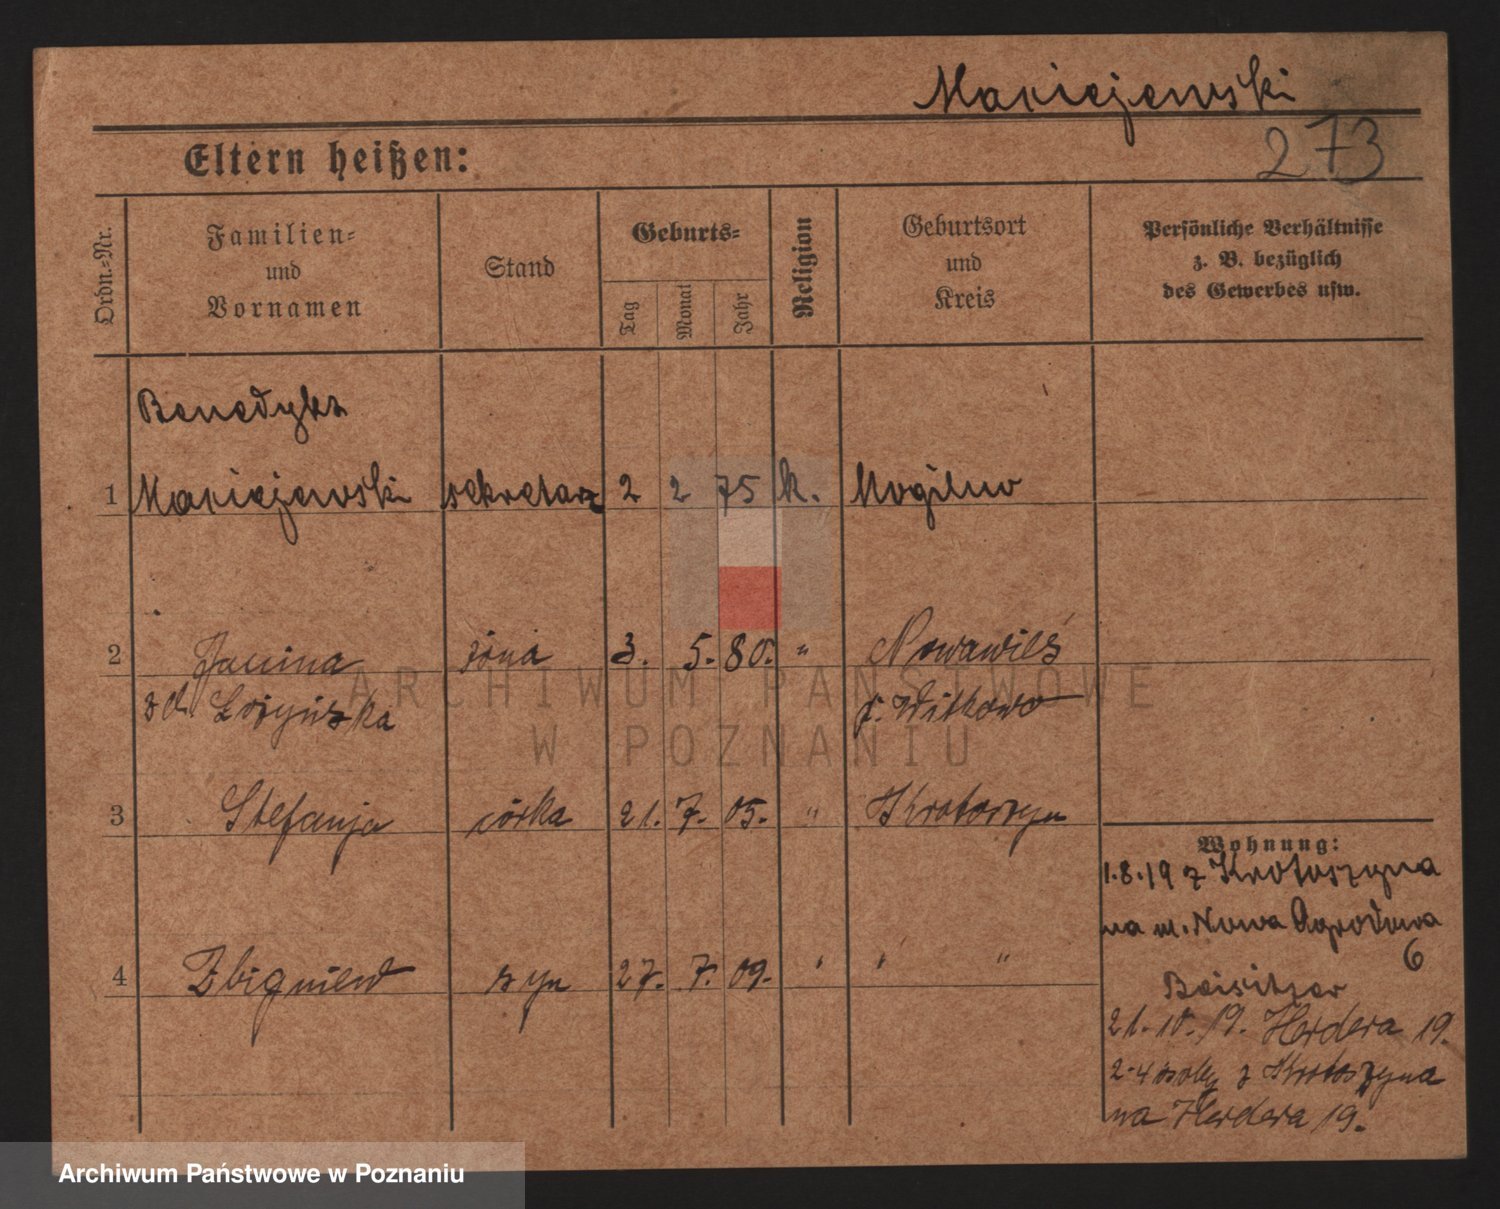 Maciejewski
273
Eltern heißen:
Ordn.-Nr.
Familien-
und
Vornamen
Stand
Geburts-
Tag
Monat
Jahr
Religion
Geburtsort
und
Kreis
Persönliche Verhältnisse
z. B. bezüglich
des Gewerbes usw.
Benedykt
1 Maciejewski sekretarz 2 2 75 k. Mogilno
2 Janina żona 3. 5. 80. " Nowawieś
z d. Łożyńska p. Witkowo
3 Stefanja córka 21. 7. 05. " Krotoszyn
Wohnung:
1.8.19 z Krotoszyna
na m. Nowa Ogrodowa
6
4 Zbigniew syn 27. 7. 09. " " "
Beisitzer
21.10.19. Herdera 19.
2-4 osoby z Krotoszyna
na Herdera 19.
ARCHIWUM PAŃSTWOWE
W POZNANIU
Archiwum Państwowe w Poznaniu